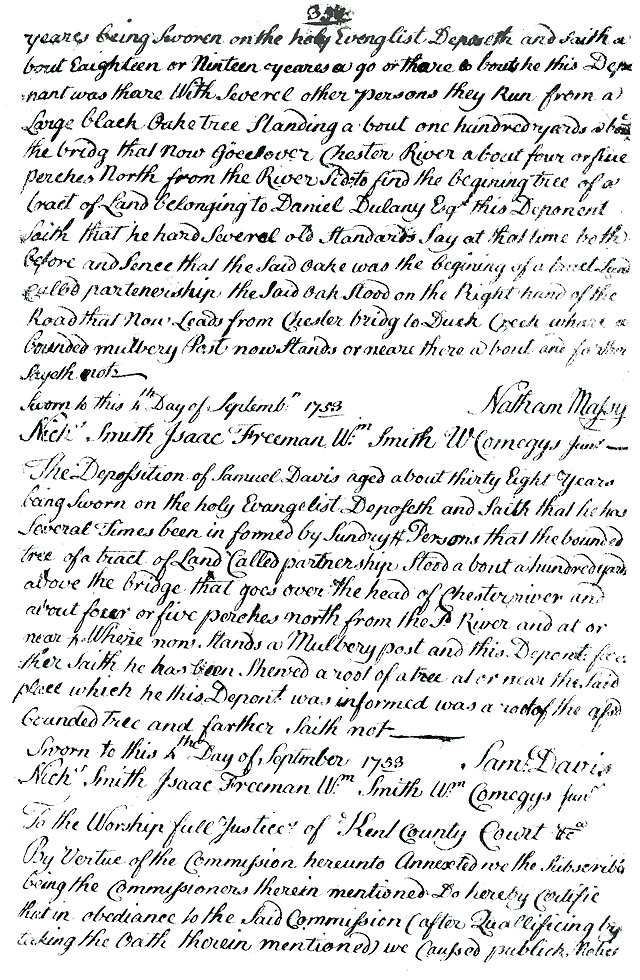 yeares being Sworen on the holy Evenglist Deposeth and Saith a
bout Eaighteen or Ninteen yeares a go or thare a bout he this Depo
nant was thare With Severel other persons they Run from a
Large black Oake tree Standing a bout one hundred yards above
the bridg that Now Goes over Chester River about four or five
perches North from the River Side to find the begining tree of a
tract of Land belonging to Daniel Dulany Esqr this Deponent
Saith that he hard Several old Standards Say at that time both
before and Sence that the Said Oake was the begining of a tract Land
Called partenership the Said Oak Stood on the Right hand of the
Road that Now Leads from Chester bridg to Duck Creek whare a
bounded mulbery Post now Stands or neare there a bout and farther
Sayeth not
Sworn to this 4th Day of Septembr 1753 Nathan Massy
Nichs Smith Isaac Freeman Wm Smith W Comegys Junr
The Deposition of Samuel Davis aged about thirty Eight Years
being Sworn on the holy Evangelist Deposeth and Saith that he has
Several Times been in formed by Sundry Persons that the bounded
tree of a tract of Land Called partnership Stood about a hundred yards
above the bridge that goes over the head of Chester river and
about four or five perches north from the Sd River and at or
near Where now Stands a Mulbery post and this Depont. fur
ther Saith he has been Shewed a root of a tree at or near the Said
place which he this Depont was informed was a root of the afsd
bounded tree and farther Saith not
Sworn to this 4th Day of September 1753 Saml. Davis
Nichs Smith Isaac Freeman Wm Smith Wm Comegys Junr
To the Worship full Justices of Kent County Court &ca
By Vertue of the Commission hereunto Annexted we the Subscribers
being the Commissioners therein mentioned Do hereby Certifie
that in obediance to the Said Commission (after Quallificing by
taking the Oath therein mentioned) we Caussed publick Notice